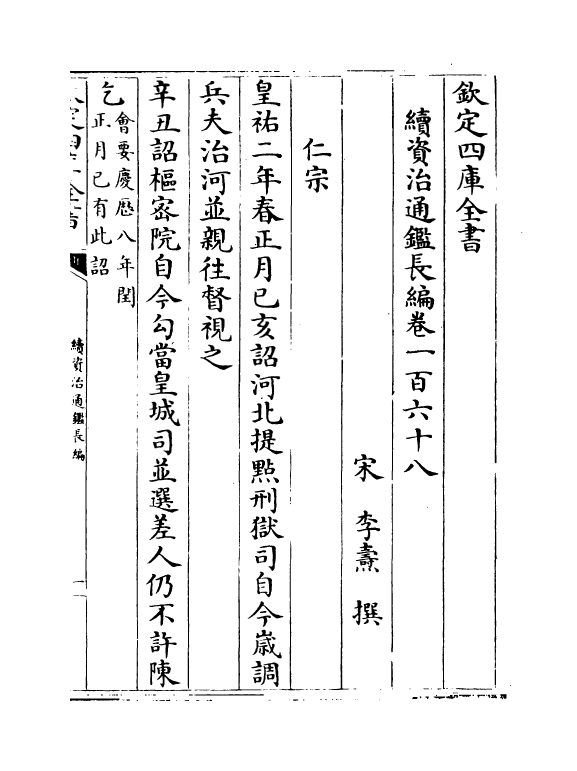 欽定四庫全書
續資治通鑑長編卷一百六十八
宋 李燾 撰
仁宗
皇祐二年春正月己亥詔河北提點刑獄司自今歳調
兵夫治河並親往督視之
辛丑詔樞宻院自今勾當皇城司並選差人仍不許陳
乞
會要慶厯八年閏
正月已有此詔
續資治通鑑長編
一